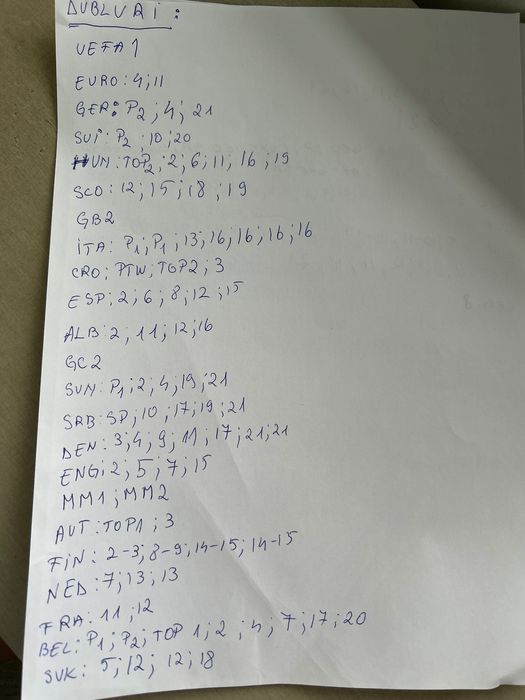 DUBLURI:
UEFA 1
EURO: 4; 11
GER: P2; 4; 21
SUI: P2; 10; 20
HUN: TOP2; 2; 6; 11; 16; 19
SCO: 12; 15; 18; 19
GB2
ITA: P1; P1; 13; 16; 16; 16; 16
CRO; PTW; TOP2; 3
ESP; 2; 6; 8; 12; 15
ALB: 2; 11; 12; 16
GC2
SVN: P1; 2; 4; 19; 21
SRB: SP; 10; 17; 19; 21
DEN: 3; 4; 9; 11; 17; 21; 21
ENG: 2; 5; 7; 15
MM1; MM2
AUT: TOP1; 3
FIN: 2-3; 8-9; 14-15; 14-15
NED: 7; 13; 13
FRA: 11; 12
BEL: P1; P2; TOP 1; 2; 4; 7; 17; 20
SVK: 5; 12; 12; 18